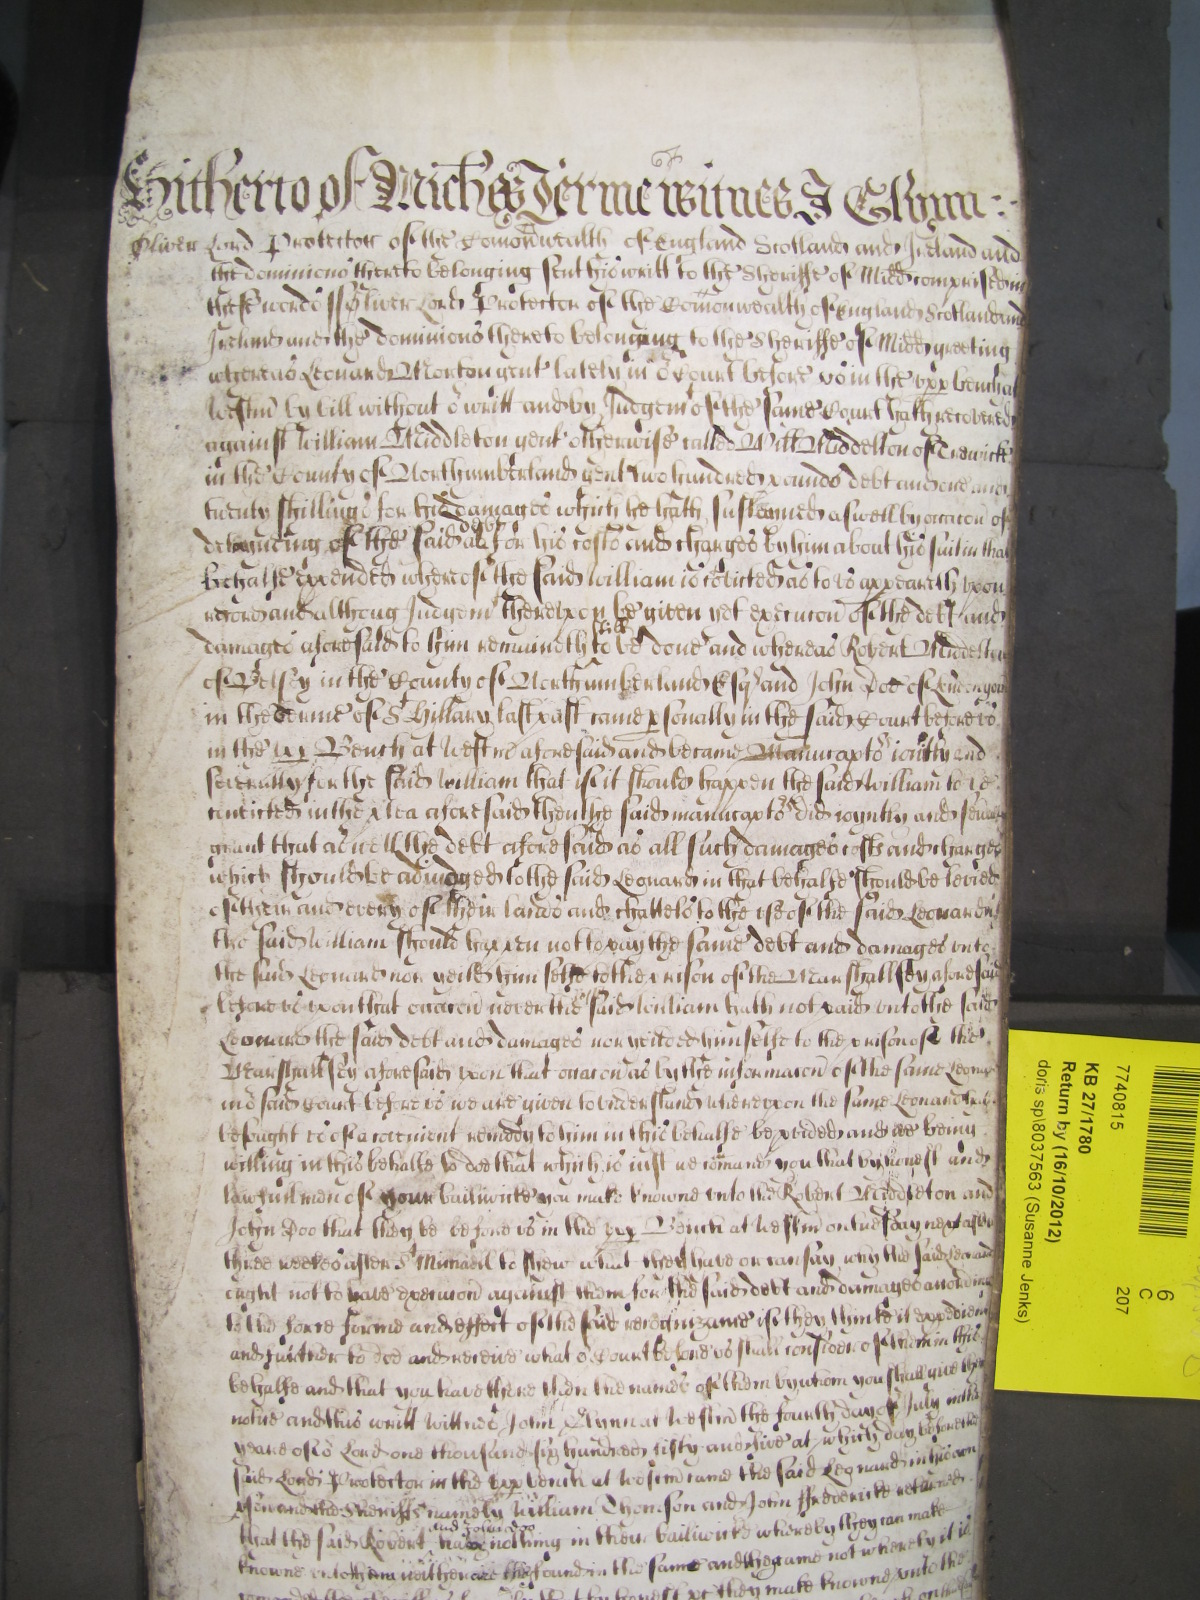 Hitherto of Mich'es Terme witnes J Glynn
Oliver Lord Protector of the Comonwealth of England Scotland and Ireland and
the dominions thereto belonging sent his writt to the Sheriffe of Midd comprised in
these words ss Oliver Lord Protector of the Comonwealth of England Scotland and
Ireland and the dominions thereto belonging to the Sheriffe of Midd greeting
whereas Leonard Morton gent lately in o Court before us in the upp bench at
Westm by bill without o writt and by Judgem of the same Court hath recovered
against William Middleton gent otherwise called Will Middelton of
in the County of Northumberland gent two hundred pounds debt and one and
twenty shillings for his damages which he hath susteyned aswell by occacon of
deteyneing of the said debt as for his costs and charges by him about his suit in that
behalfe expended whereof the said William is convicted as to us appeareth upon
record and althoug Judgem thereupon be given yet execucon of the debt and
damages aforesaid to him remaineth still to be done and whereas Robert Middelton
of Belsey in the County of Northumberland Esq and John Poe of
in the Terme of St Hillary last past came psonally in the said Court before us
in the upp Bench at Westm aforesaid and became Manucapto's ioyntly and
severally for the said William that if it should happen the said William to be
convicted in the plea aforesaid then the said manucapto's did ioyntly and severally
graunt that aswell the debt aforesaid as all such damages costs and charges
which should be adiudged to the said Leonard in that behalfe should be levied
of their and every of their lands and chattels to the use of the said Leonard if
the said William should happen not to pay the same debt and damages unto
the said Leonard nor yeild himselfe to the prison of the Marshallsey aforesaid
before us upon that occacon never the said William hath not paid unto the said
Leonard the said debt and damages nor yeilded himselfe to the prison of the
Marshallsey aforesaid upon that occacon as by the informacon of the same Leonard
in o said Court before us we are given to understand whereupon the same Leonard hath
besought us of a covenient remedy to him in this behalfe be pvided and we being
willing in this behalfe to doe that which is iust we comand you that by honest and
lawfull men of your bailiwicke you make knowne unto the Robert Middleton and
John Poo that they be before us in the upp Bench at Westm on tuesday next after
three weekes after St Michaell to shew what they have or can say why the said Leonard
ought not to have execucon against them for the said debt and damages according
to the force forme and effect of the said recognizance if they thinke it expedient
and further to doe and receive what o Court before us shall consider of them in this
behalfe and that you have there then the names of them by whom you shall give them
notice and this writt Wittnes John Glynn at Westm the fourth day of July in the
yeare of o Lord one thousand six hundred fifty and five at which day before the
said Lord Protector in the upp bench at Westm came the said Leonard in his own
pson and the Sheriffs namely William Thomson and John Frederick returned
that the said Robert and John Poo have nothing in their bailiwicke whereby they can make
knowne unto them neither are they found in the same and the same not whereby it is
7740815
207
KB 27/1780
Return by (16/10/2012)
doris sp\8037563 (Susanne Jenks)
6
C